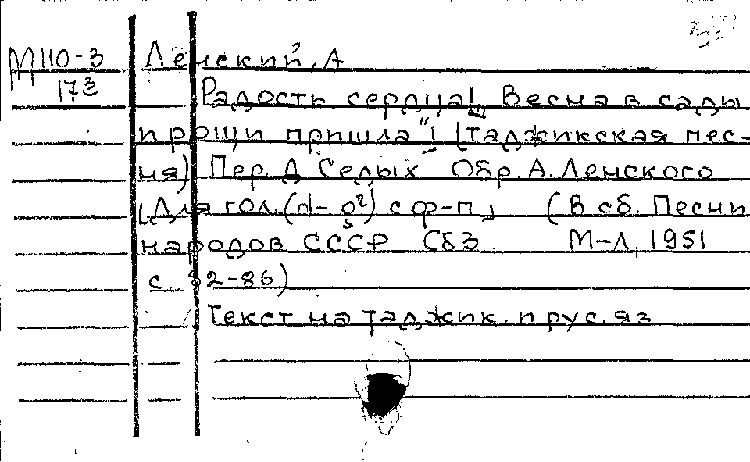 М110-3 Ленский, А
173
Радость сердца! „Весна в сады
и рощи пришла"! [таджикская пес-
ня) Пер. Д Седых Обр. А. Ленского
[Для гол. (d- g²) с ф-п] (В сб. Песни
народов СССР Сб3 М-Л, 1951
с. 82-86)
Текст на таджик. и рус. яз